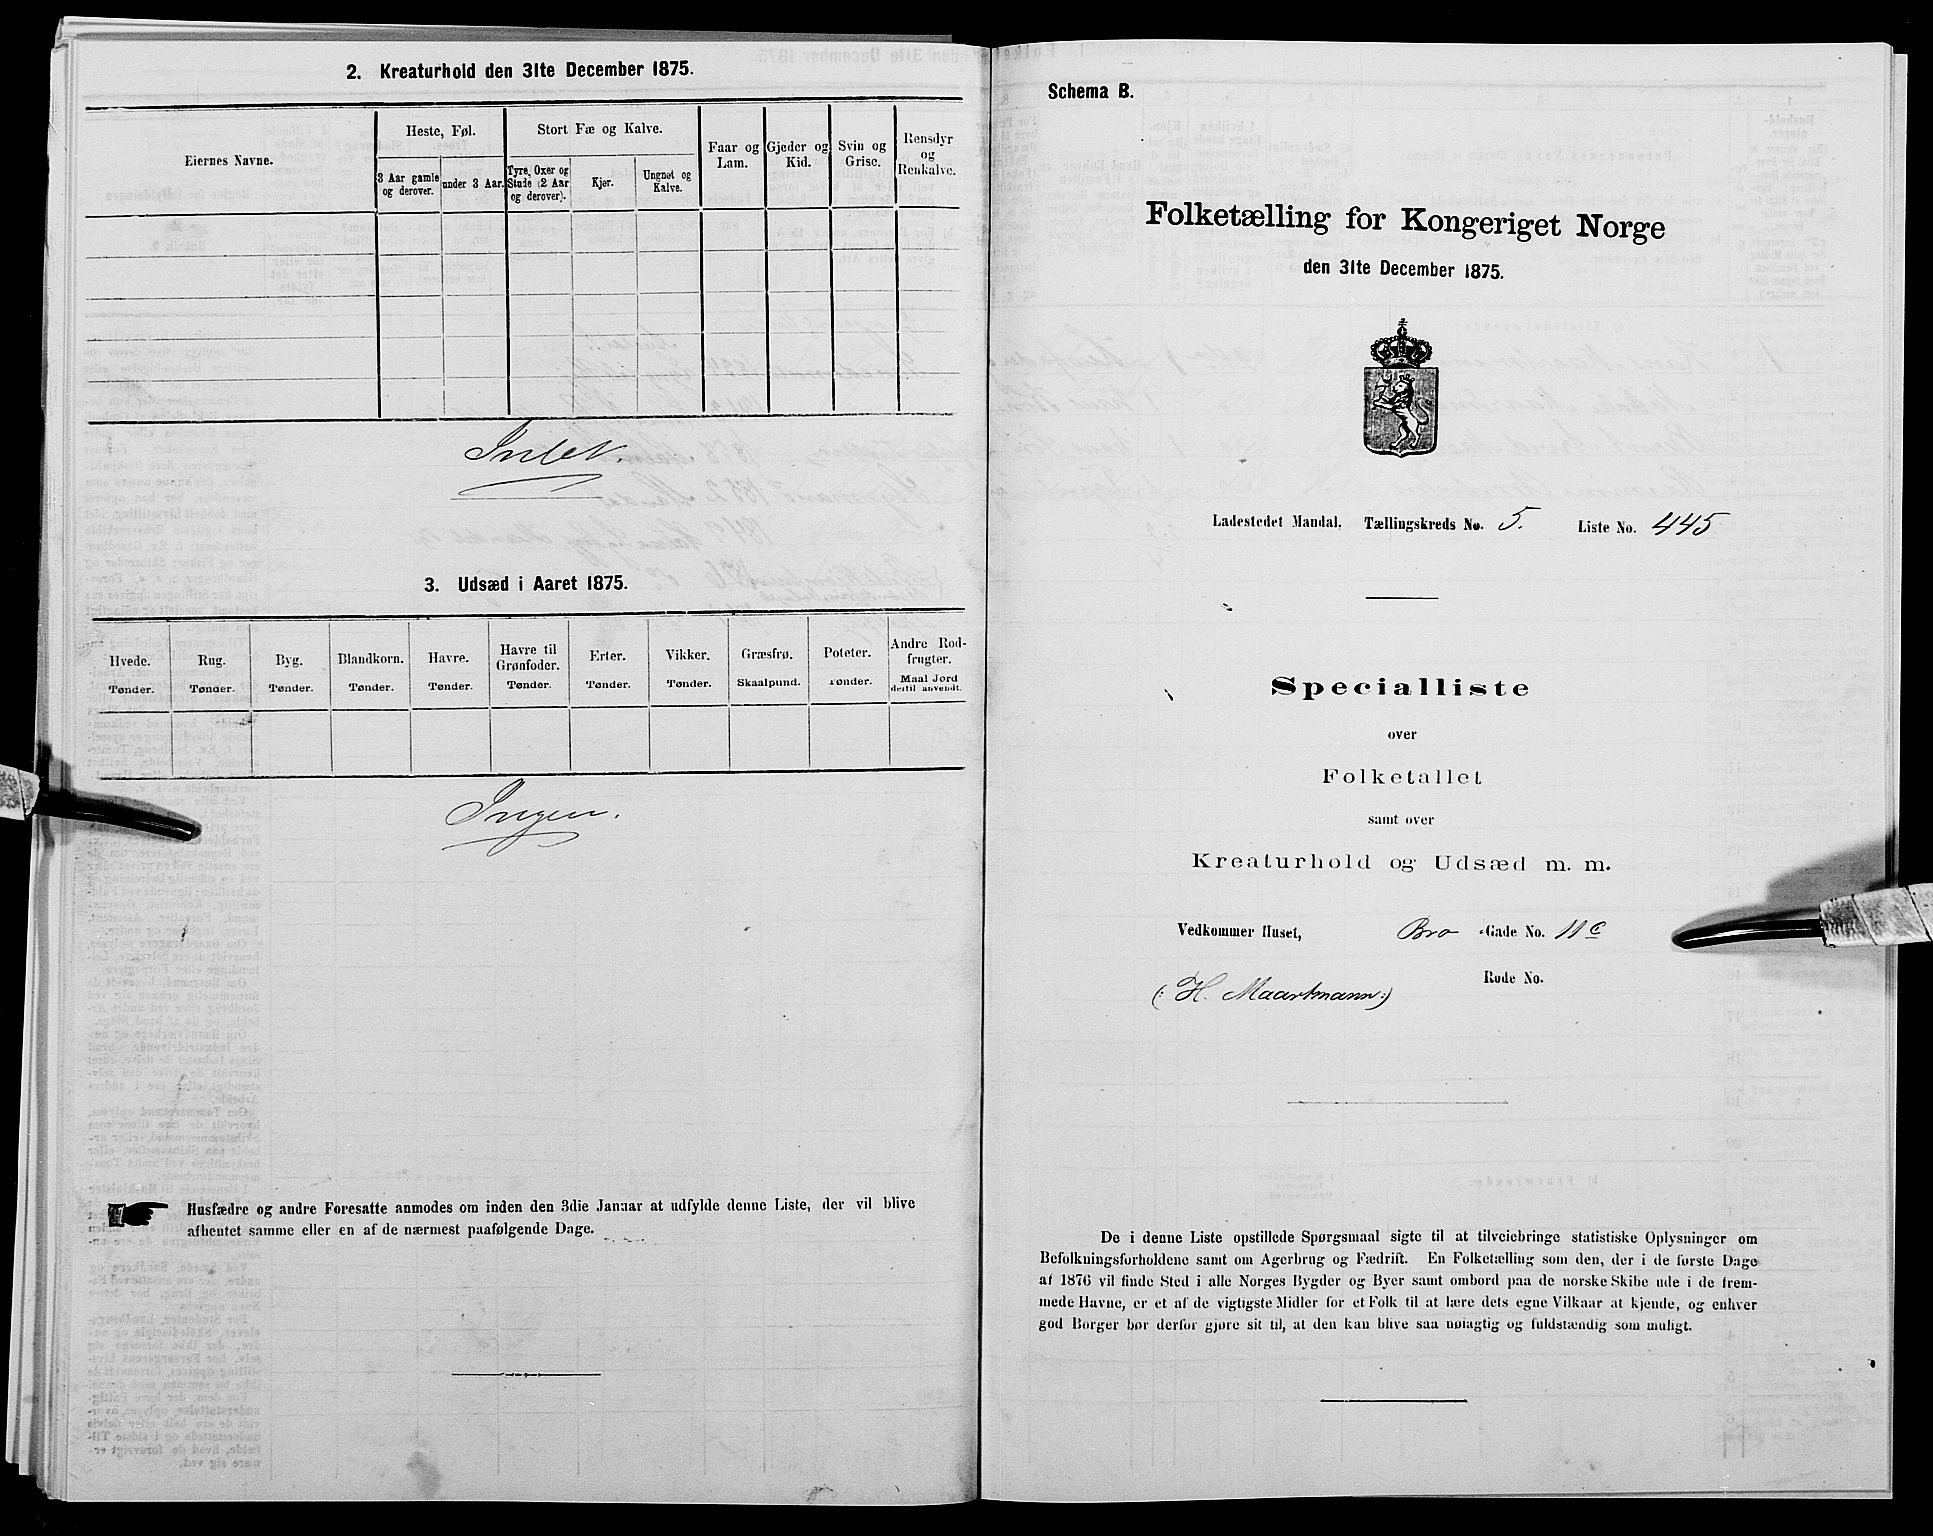 2. Kreaturhold den 31te December 1875.
Eiernes Navne.
Heste, Føl.
3 Aar gamle og derover.
under 3 Aar.
Stort Fæ og Kalve.
Tyre, Oxer og Stude (2 Aar og derover).
Kjør.
Ungnøt og Kalve.
Faar og Lam.
Gjeder og Kid.
Svin og Grise.
Rensdyr og Renkalve.
Intet.
3. Udsæd i Aaret 1875.
Hvede. Tønder.
Rug. Tønder.
Byg. Tønder.
Blandkorn. Tønder.
Havre. Tønder.
Havre til Grønfoder. Tønder.
Erter. Tønder.
Vikker. Tønder.
Græsfrø. Skaalpund.
Poteter. Tønder.
Andre Rodfrugter. Maal Jord dertil anvendt.
Ingen.
Husfædre og andre Foresatte anmodes om inden den 3die Januar at udfylde denne Liste, der vil blive
afhentet samme eller en af de nærmest paafølgende Dage.
Schema B.
Folketælling for Kongeriget Norge
den 31te December 1875.
Ladestedet Mandal. Tællingskreds No. 5. Liste No. 445
Specialliste
over
Folketallet
samt over
Kreaturhold og Udsæd m. m.
Vedkommer Huset, Bro Gade No. 11c
(: H. Maartmann :)
Rode No.
De i denne Liste opstillede Spørgsmaal sigte til at tilveiebringe statistiske Oplysninger om
Befolkningsforholdene samt om Agerbrug og Fædrift. En Folketælling som den, der i de første Dage
af 1876 vil finde Sted i alle Norges Bygder og Byer samt ombord paa de norske Skibe ude i de frem-
mede Havne, er et af de vigtigste Midler for et Folk til at lære dets egne Vilkaar at kjende, og enhver
god Borger bør derfor gjøre sit til, at den kan blive saa nøiagtig og fuldstændig som muligt.